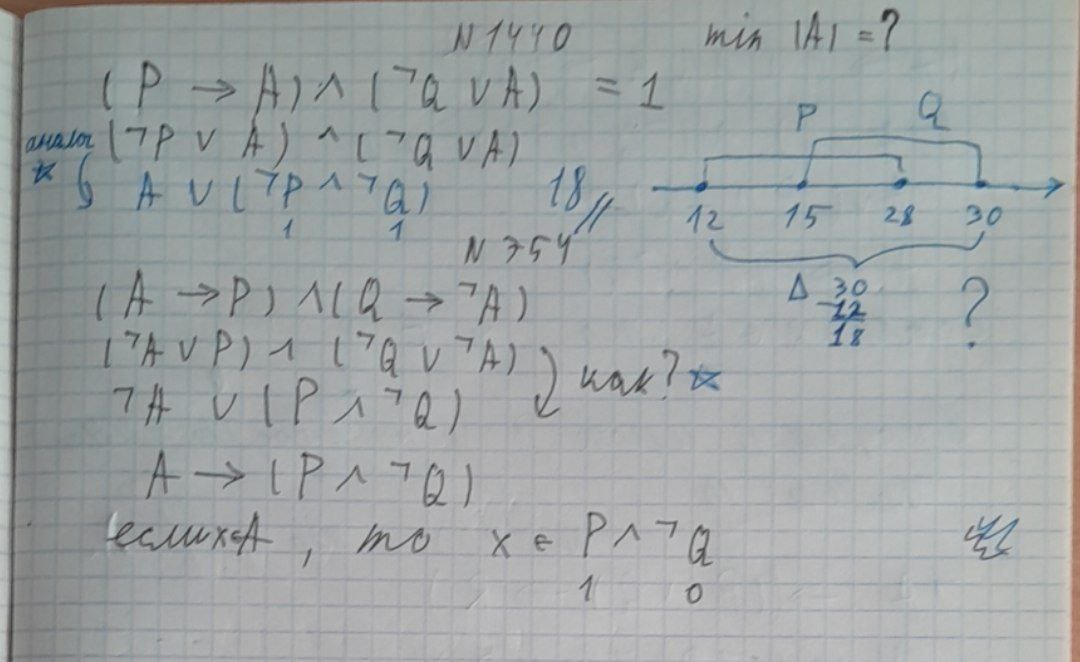 N1440 min |A| = ?
(P → A) ∧ (¬Q ∨ A) = 1
аналог (¬P ∨ A) ∧ (¬Q ∨ A)
A ∨ (¬P ∧ ¬Q) 18//
1 1
P Q
12 15 28 30
Δ 30
-12
18
?
N 754
(A → P) ∧ (Q → ¬A)
(¬A ∨ P) ∧ (¬Q ∨ ¬A)
как?
¬A ∨ (P ∧ ¬Q)
A → (P ∧ ¬Q)
если x∈A, то x ∈ P ∧ ¬Q
1 0